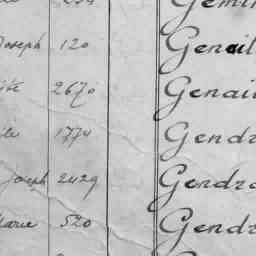 Joseph 120 Genail
2670 Genai
1774 Gendr
Joseph 2429 Gendro
Marie 520 Gendr